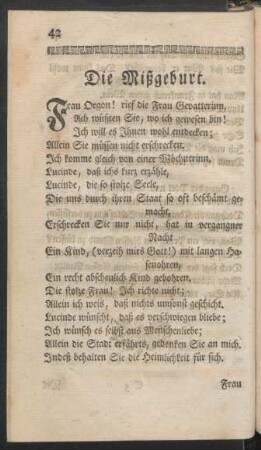 42
Die Mißgeburt.
Frau Orgon! rief die Frau Gevatterinn,
Ach wüßten Sie, wo ich gewesen bin!
Ich will es Ihnen wohl entdecken;
Allein Sie müssen nicht erschrecken.
Ich komme gleich von einer Wöchnerinn.
Lucinde, daß ichs kurz erzähle,
Lucinde, die so stolze Seele,
Die uns durch ihren Staat so oft beschämt ge-
macht,
Erschrecken Sie nur nicht, hat in vergangner
Nacht
Ein Kind, (verzeih mirs Gott!) mit langen Ha-
senohren,
Ein recht abscheulich Kind gebohren.
Die stolze Frau! Ich richte nicht;
Allein ich weis, daß nichts umsonst geschicht.
Lucinde wünscht, daß es verschwiegen bliebe;
Ich wünsch es selbst aus Menschenliebe;
Allein die Stadt erfährts, gedenken Sie an mich.
Indeß behalten Sie die Heimlichkeit für sich.
Frau